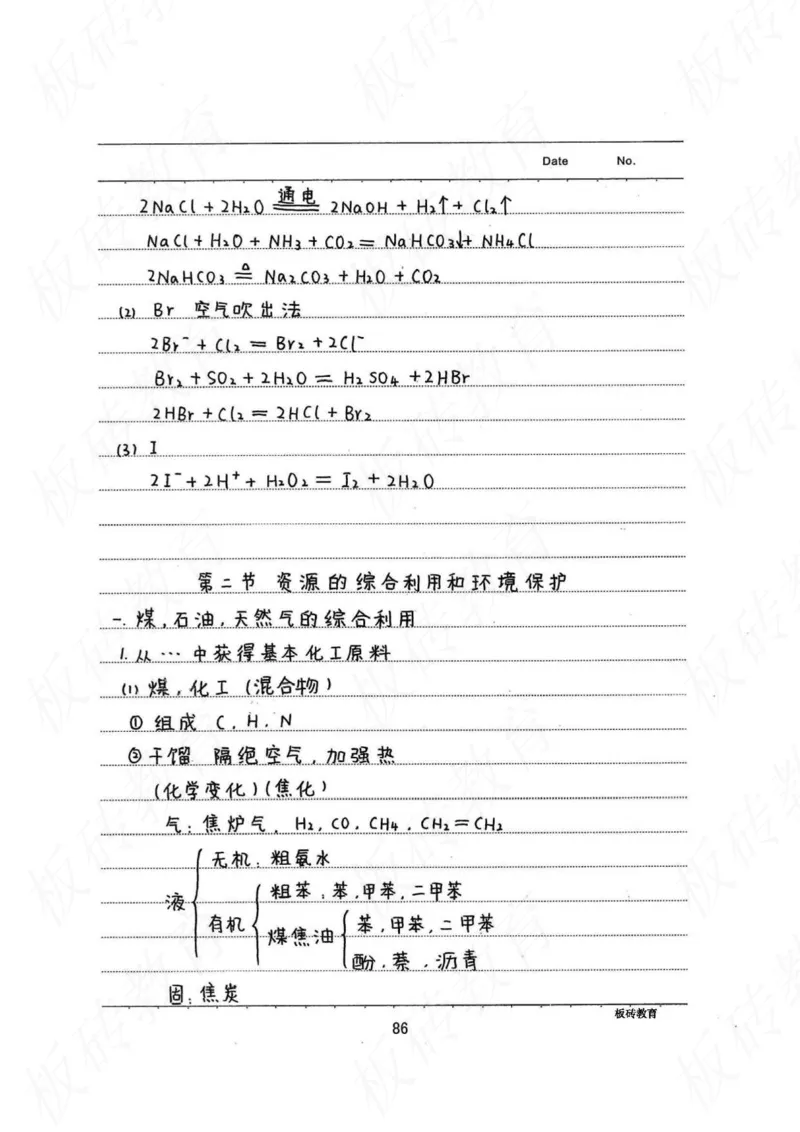 Date No.
2NaCl + 2H₂O 通电 ═ 2NaOH + H₂↑ + Cl₂↑
NaCl + H₂O + NH₃ + CO₂ = NaHCO₃↓ + NH₄Cl
2NaHCO₃ △ ═ Na₂CO₃ + H₂O + CO₂
(2) Br 空气吹出法
2Br⁻ + Cl₂ = Br₂ + 2Cl⁻
Br₂ + SO₂ + 2H₂O = H₂SO₄ + 2HBr
2HBr + Cl₂ = 2HCl + Br₂
(3) I
2I⁻ + 2H⁺ + H₂O₂ = I₂ + 2H₂O
第二节 资源的综合利用和环境保护
一. 煤,石油,天然气的综合利用
1. 从 … 中获得基本化工原料
(1) 煤,化工 (混合物)
① 组成 C, H, N
② 干馏 隔绝空气,加强热
(化学变化)(焦化)
气: 焦炉气, H₂, CO, CH₄, CH₂=CH₂
无机: 粗氨水
液
粗苯: 苯,甲苯,二甲苯
有机
苯,甲苯,二甲苯
煤焦油
酚,萘,沥青
固: 焦炭
板砖教育
86